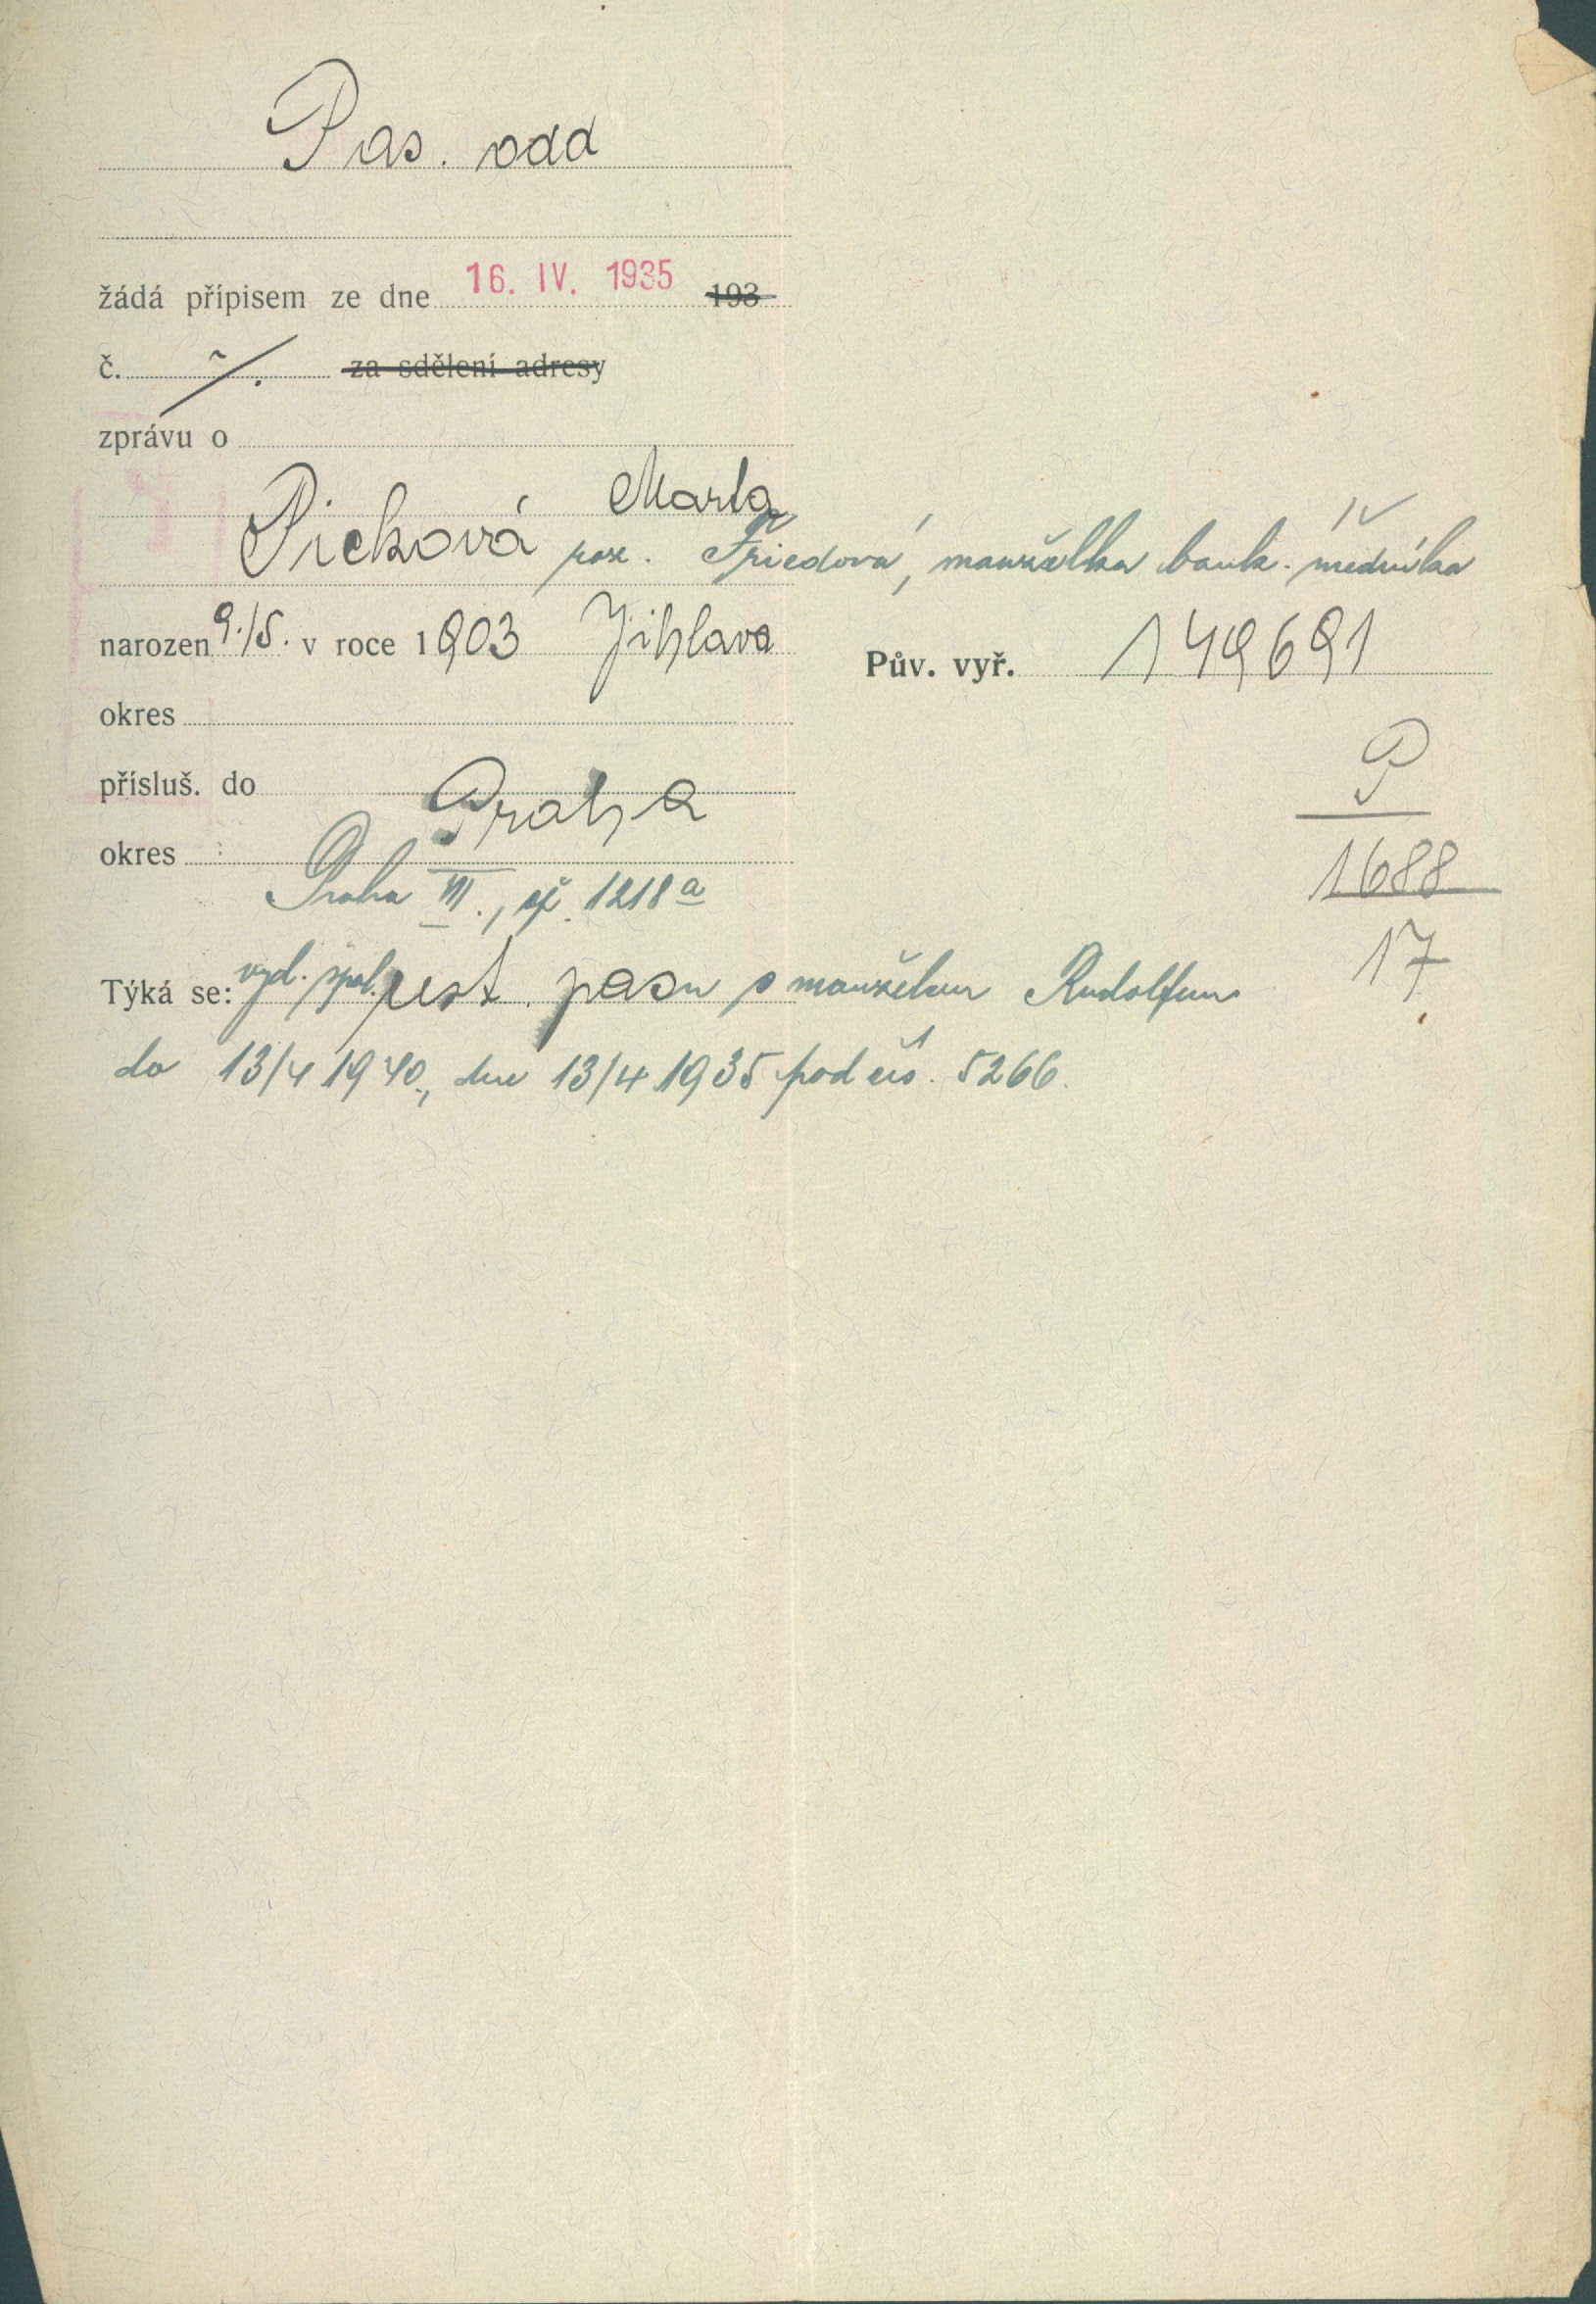 Pas. odd
žádá přípisem ze dne 16. IV. 1935 193
č. ~/. za sdělení adresy
zprávu o
Picková Marta
roz. Friedová, manželka bank. úředníka
narozen 9./5. v roce 1903 Jihlava
Pův. vyř. 149691
okres
P
přísluš. do Praha
1688
okres
Praha VII., čp. 1218a
17
Týká se: vyd. spol. cest. pasu s manželem Rudolfem
do 13/4 1940, dne 13/4 1935 pod čís. 5266.